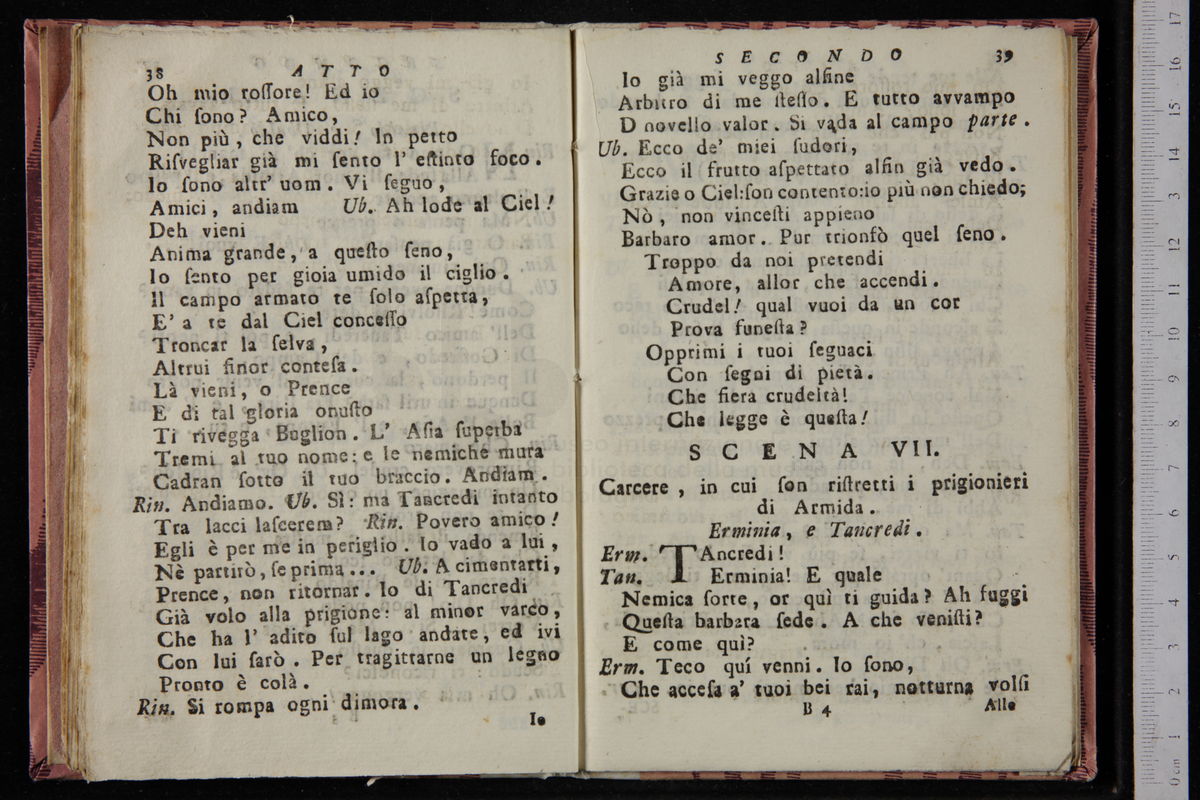 38 ATTO
Oh mio roſſore! Ed io
Chi ſono? Amico,
Non più, che viddi! In petto
Riſvegliar già mi ſento l' eſtinto foco.
Io ſono altr' uom. Vi ſeguo,
Amici, andiam Ub. Ah lode al Ciel!
Deh vieni
Anima grande, a queſto ſeno,
Io ſento per gioia umido il ciglio.
Il campo armato te ſolo aſpetta,
E' a te dal Ciel conceſſo
Troncar la ſelva,
Altrui finor conteſa.
Là vieni, o Prence
E di tal gloria onuſto
Ti rivegga Buglion. L' Aſia ſuperba
Tremi al tuo nome: e le nemiche mura
Cadran ſotto il tuo braccio. Andiam.
Rin. Andiamo. Ub. Sì: ma Tancredi intanto
Tra lacci laſcerem? Rin. Povero amico!
Egli è per me in periglio. Io vado a lui,
Nè partirò, ſe prima... Ub. A cimentarti,
Prence, non ritornar. Io di Tancredi
Già volo alla prigione: al minor varco,
Che ha l' adito ſul lago andate, ed ivi
Con lui ſarò. Per tragittarne un legno
Pronto è colà.
Rin. Si rompa ogni dimora.
Io
SECONDO 39
Io già mi veggo alfine
Arbitro di me ſteſſo. E tutto avvampo
D novello valor. Si vada al campo parte.
Ub. Ecco de' miei ſudori,
Ecco il frutto aſpettato alfin già vedo.
Grazie o Ciel: ſon contento: io più non chiedo;
Nò, non vinceſti appieno
Barbaro amor. Pur trionfò quel ſeno.
Troppo da noi pretendi
Amore, allor che accendi.
Crudel! qual vuoi da un cor
Prova funeſta?
Opprimi i tuoi ſeguaci
Con ſegni di pietà.
Che fiera crudeltà!
Che legge è queſta!
SCENA VII.
Carcere, in cui ſon riſtretti i prigionieri
di Armida.
Erminia, e Tancredi.
Erm. TAncredi!
Tan. Erminia! E quale
Nemica ſorte, or quì ti guida? Ah fuggi
Queſta barbara ſede. A che veniſti?
E come quì?
Erm. Teco quí venni. Io ſono,
Che acceſa a' tuoi bei rai, notturna volſi
B 4 Alle